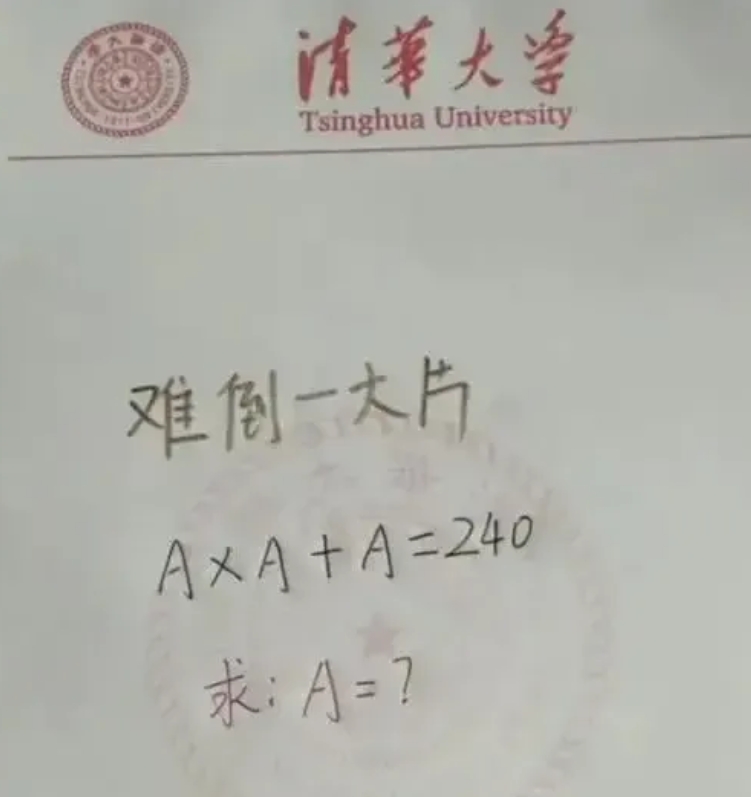 清華大学
Tsinghua University
难倒一大片
A×A+A=240
求：A=?